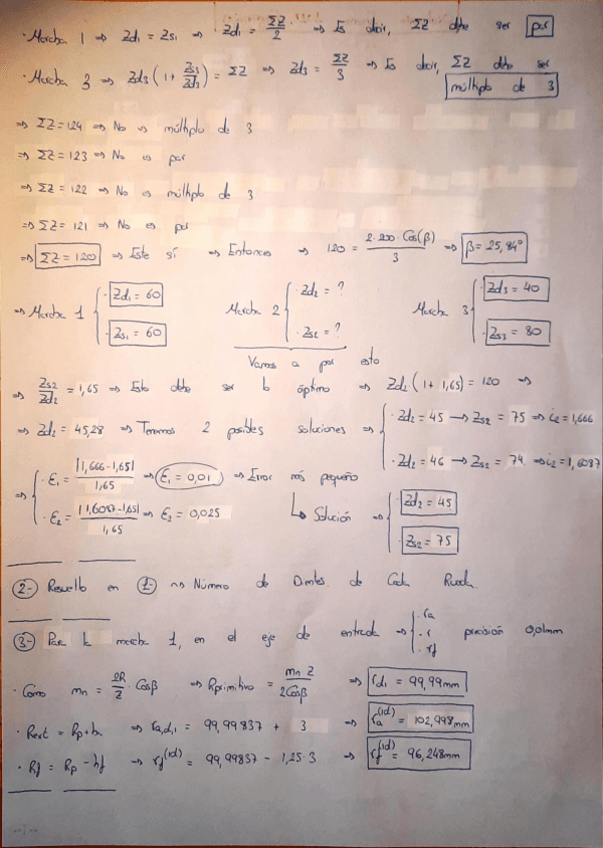 · Marcha 1 ⇒ Zd₁ = Zs₁ ⇒ Zd₁ = ΣZ/2 ⇒ Es decir, ΣZ debe ser par
· Marcha 3 ⇒ Zd₃ (1 + Zs₃/Zd₃) = ΣZ ⇒ Zd₃ = ΣZ/3 ⇒ Es decir, ΣZ debe ser múltiplo de 3
⇒ ΣZ = 124 ⇒ No es múltiplo de 3
⇒ ΣZ = 123 ⇒ No es par
⇒ ΣZ = 122 ⇒ No es múltiplo de 3
⇒ ΣZ = 121 ⇒ No es par
⇒ ΣZ = 120 ⇒ Este sí ⇒ Entonces ⇒ 120 = 2·200·Cos(β)/3 ⇒ β = 25,84°
⇒ Marcha 1 { · Zd₁ = 60 Marcha 2 { · Zd₂ = ? Marcha 3 { · Zd₃ = 40
· Zs₁ = 60 · Zs₂ = ? · Zs₃ = 80
Vamos a por esto
⇒ Zs₂/Zd₂ = 1,65 ⇒ Esto debe ser lo óptimo ⇒ Zd₂ (1 + 1,65) = 120 ⇒
⇒ Zd₂ = 45,28 ⇒ Tenemos 2 posibles soluciones ⇒ { · Zd₂ = 45 → Zs₂ = 75 ⇒ i₂ = 1,666
· Zd₂ = 46 → Zs₂ = 74 ⇒ i₂ = 1,6087
⇒ { · ε₁ = |1,666 - 1,65|/1,65 ⇒ ε₁ = 0,01 ⇒ Error más pequeño
· ε₂ = |1,6087 - 1,65|/1,65 ⇒ ε₂ = 0,025 ↳ Solución ⇒ { · Zd₂ = 45
· Zs₂ = 75
2.- Resuelto en 1.- ⇒ Número de Dientes de Cada Rueda
3.- Para la marcha 1, en el eje de entrada ⇒ { · ra · r · rf precisión 0,01mm
· Como mn = 2R/Z · Cosβ ⇒ Rprimitivo = mn Z/2Cosβ ⇒ rd₁ = 99,99mm
· Rext = Rp + ha ⇒ ra,d,1 = 99,99837 + 3 ⇒ ra⁽ⁱᵈ⁾ = 102,998mm
· Rf = Rp - hf ⇒ rf⁽ⁱᵈ⁾ = 99,99837 - 1,25·3 ⇒ rf⁽ⁱᵈ⁾ = 96,248mm